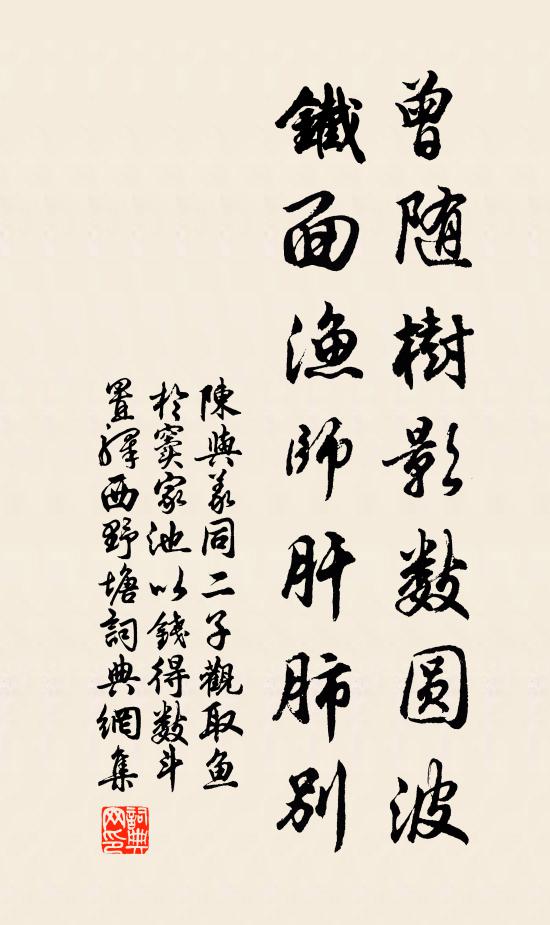 曾随樹影数圆波
鐵面漁師肝肺别
陳與義同二子觀取魚
於竇家池以錢得数斗
置驛西野塘詞典網集
詞典
网印